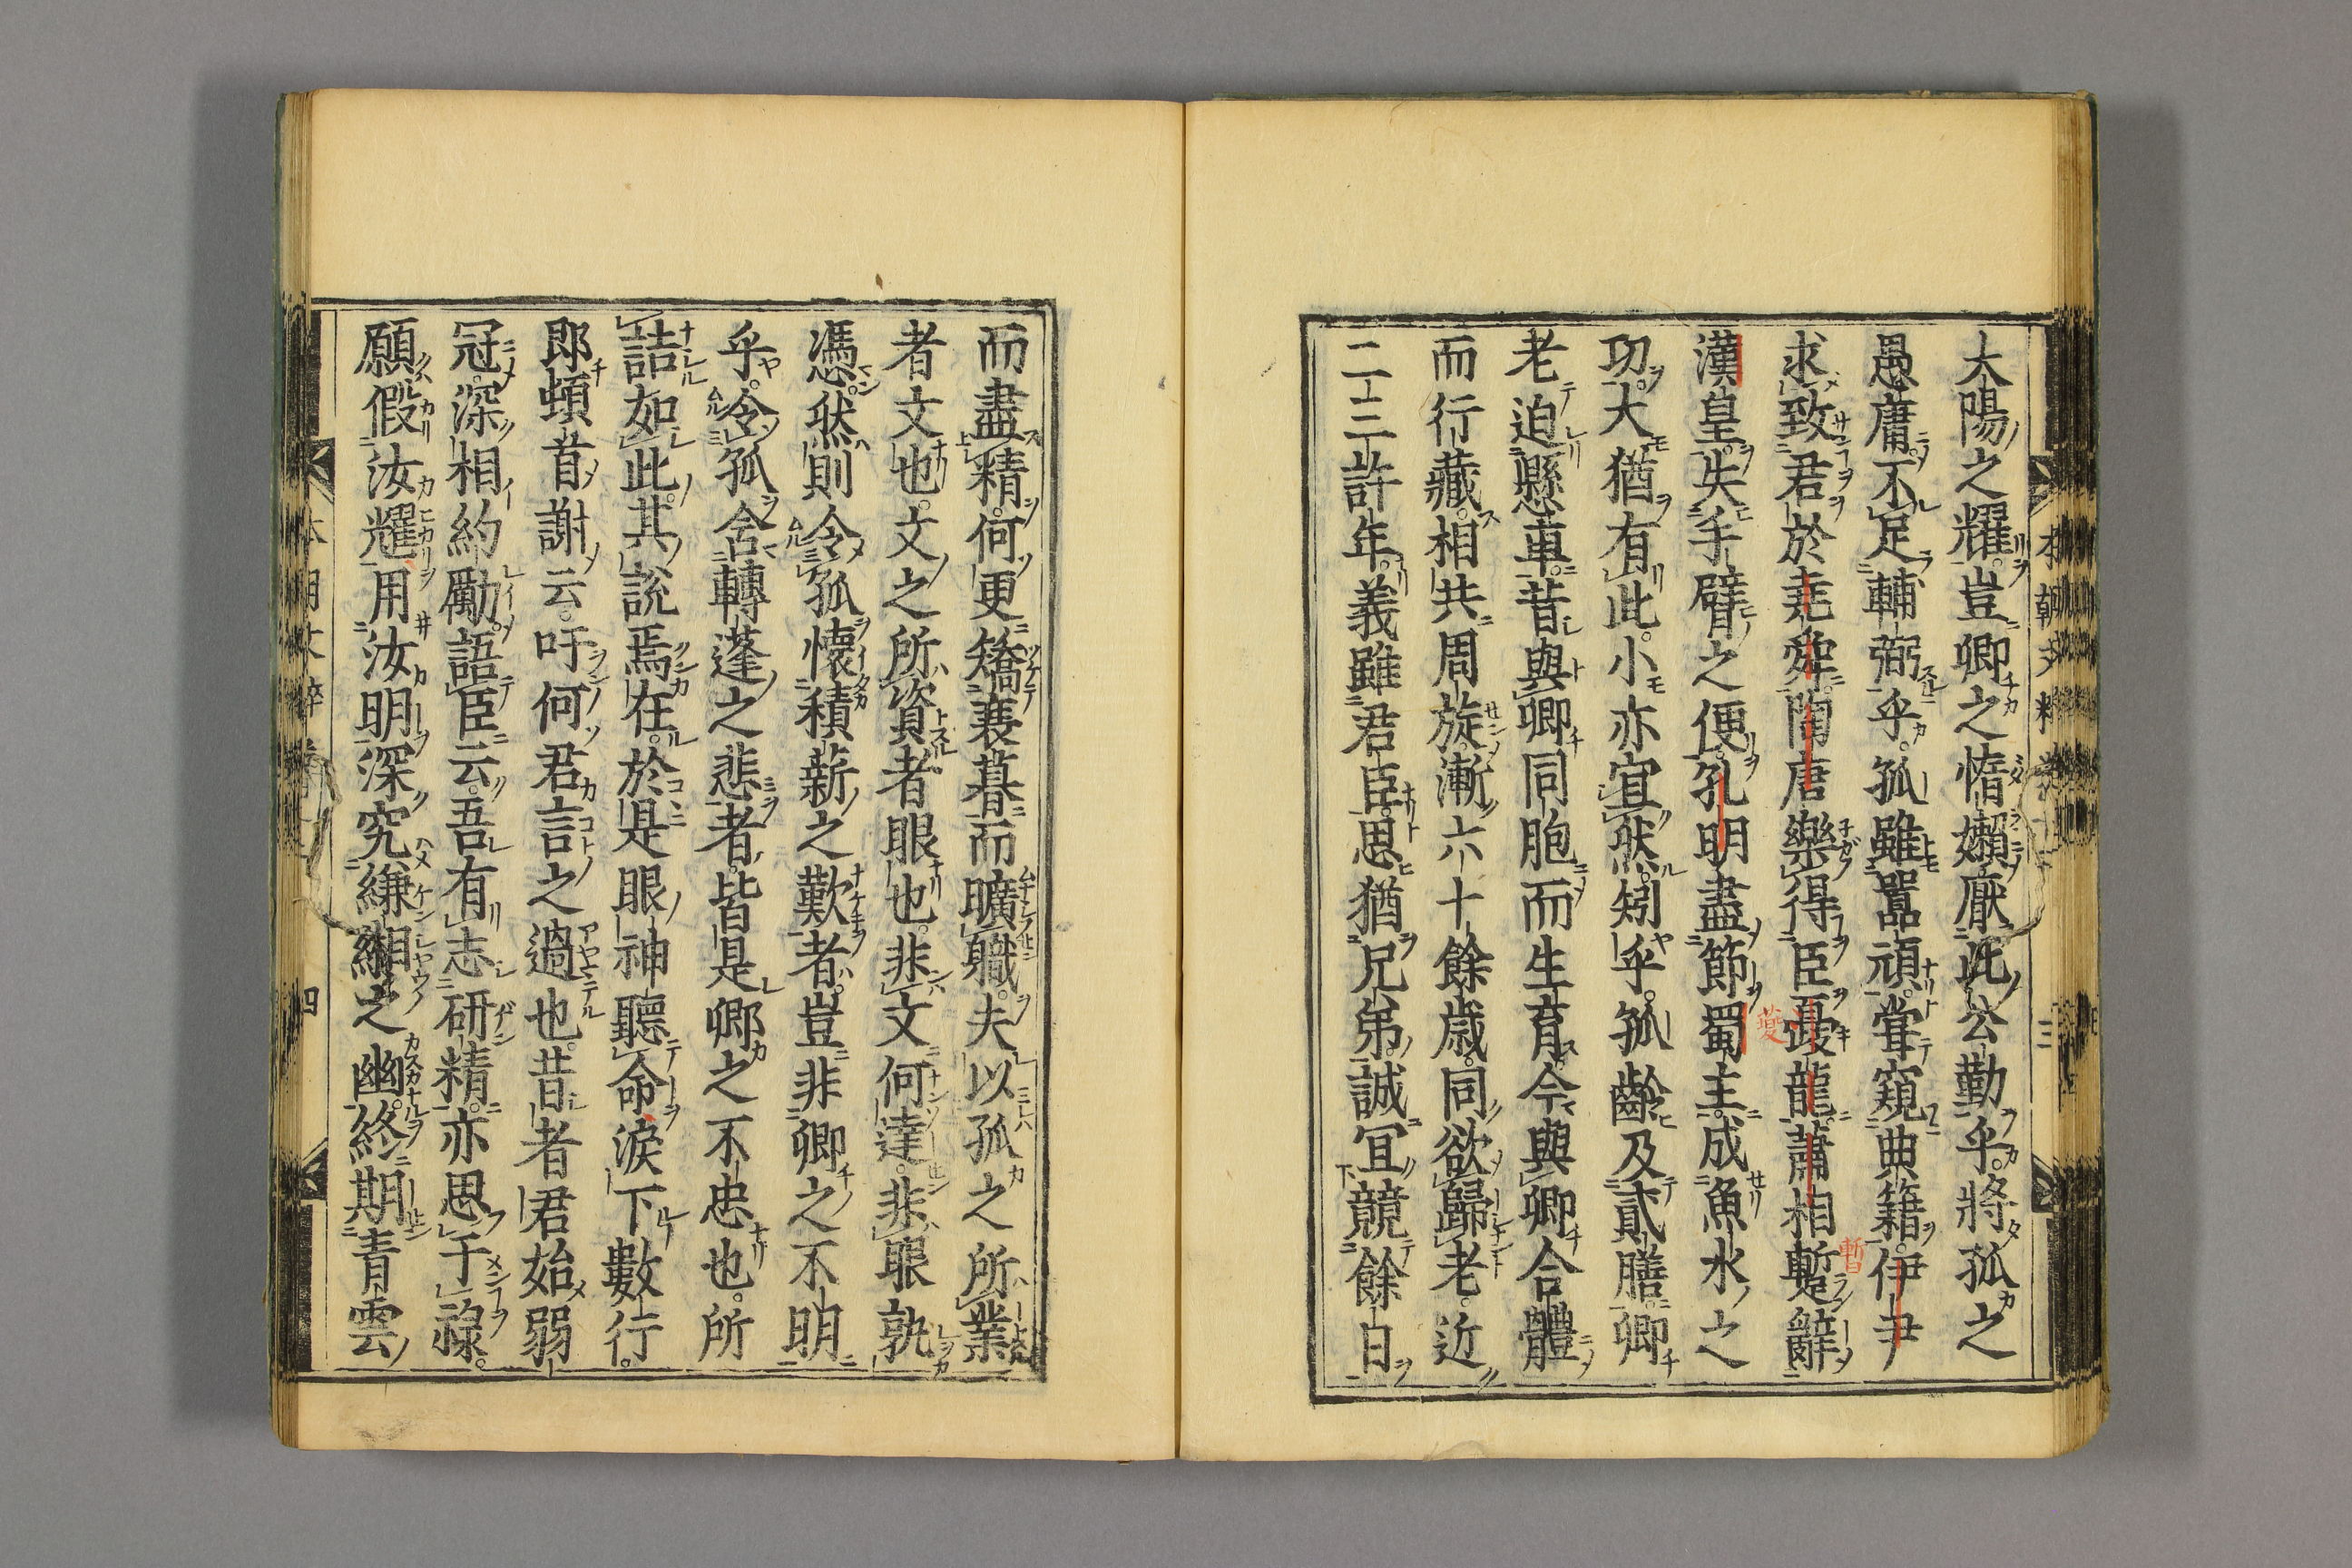 大陽之耀豈卿之惰嬾厭此公勤乎將孤之
愚庸不足輔弼乎孤雖嚚頑甞窺典籍伊尹
求致君於堯舜陶唐樂得臣夔龍蕭相蹔辭
漢皇失手臂之便孔明盡節蜀主成魚水之
功大猶有此小亦宜然矧乎孤齡及貳膳卿
老迫懸車昔與卿同胞而生育今與卿合體
而行藏相共周旋漸六十餘歳同欲歸老近
二三許年義雖君臣思猶兄弟誠冝競餘白
而盡精何更矯襄暮而曠職夫以孤之所業
者文也文之所資者眼也非文何達非眼孰
憑然則令孤懷積薪之歎者豈非卿之不明
乎令孤含轉蓬之悲者皆是卿之不忠也所
詰如此其說焉在於是眼神聽命淚下數行
郎頓首謝云吁何君言之過也昔者君始弱
冠深相約勵語臣云吾有志研精亦思于祿
願假汝耀用汝明深究縑緗之幽終期青雲
本朝文粹
三
本朝文粹
四
夔
暫